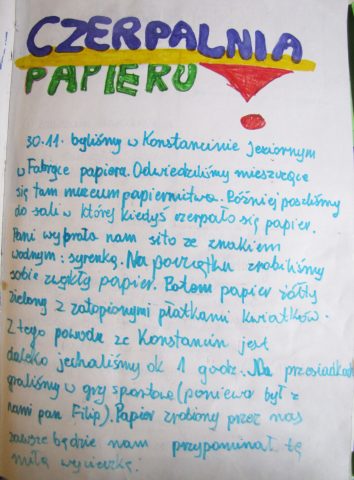 CZERPALNIA
PAPIERU
30.11. byliśmy w Konstancinie Jeziornym
w Fabryce papieru. Odwiedziliśmy mieszczące
się tam muzeum papiernictwa. Później poszliśmy
do sali w której kiedyś czerpało się papier.
Pani wybrała nam sito ze znakiem
wodnym: syrenką. Na początku zrobiliśmy
sobie zwykły papier. Potem papier żółty
zielony z zatopionymi płatkami kwiatków.
Z tego powodu że Konstancin jest
daleko jechaliśmy ok 1 godz. Na przesiadkach
graliśmy w gry sportowe (poniewa był z
nami pan Filip). Papier zrobiony przez nas
zawsze będzie nam przypominał tę
miłą wycieczkę.